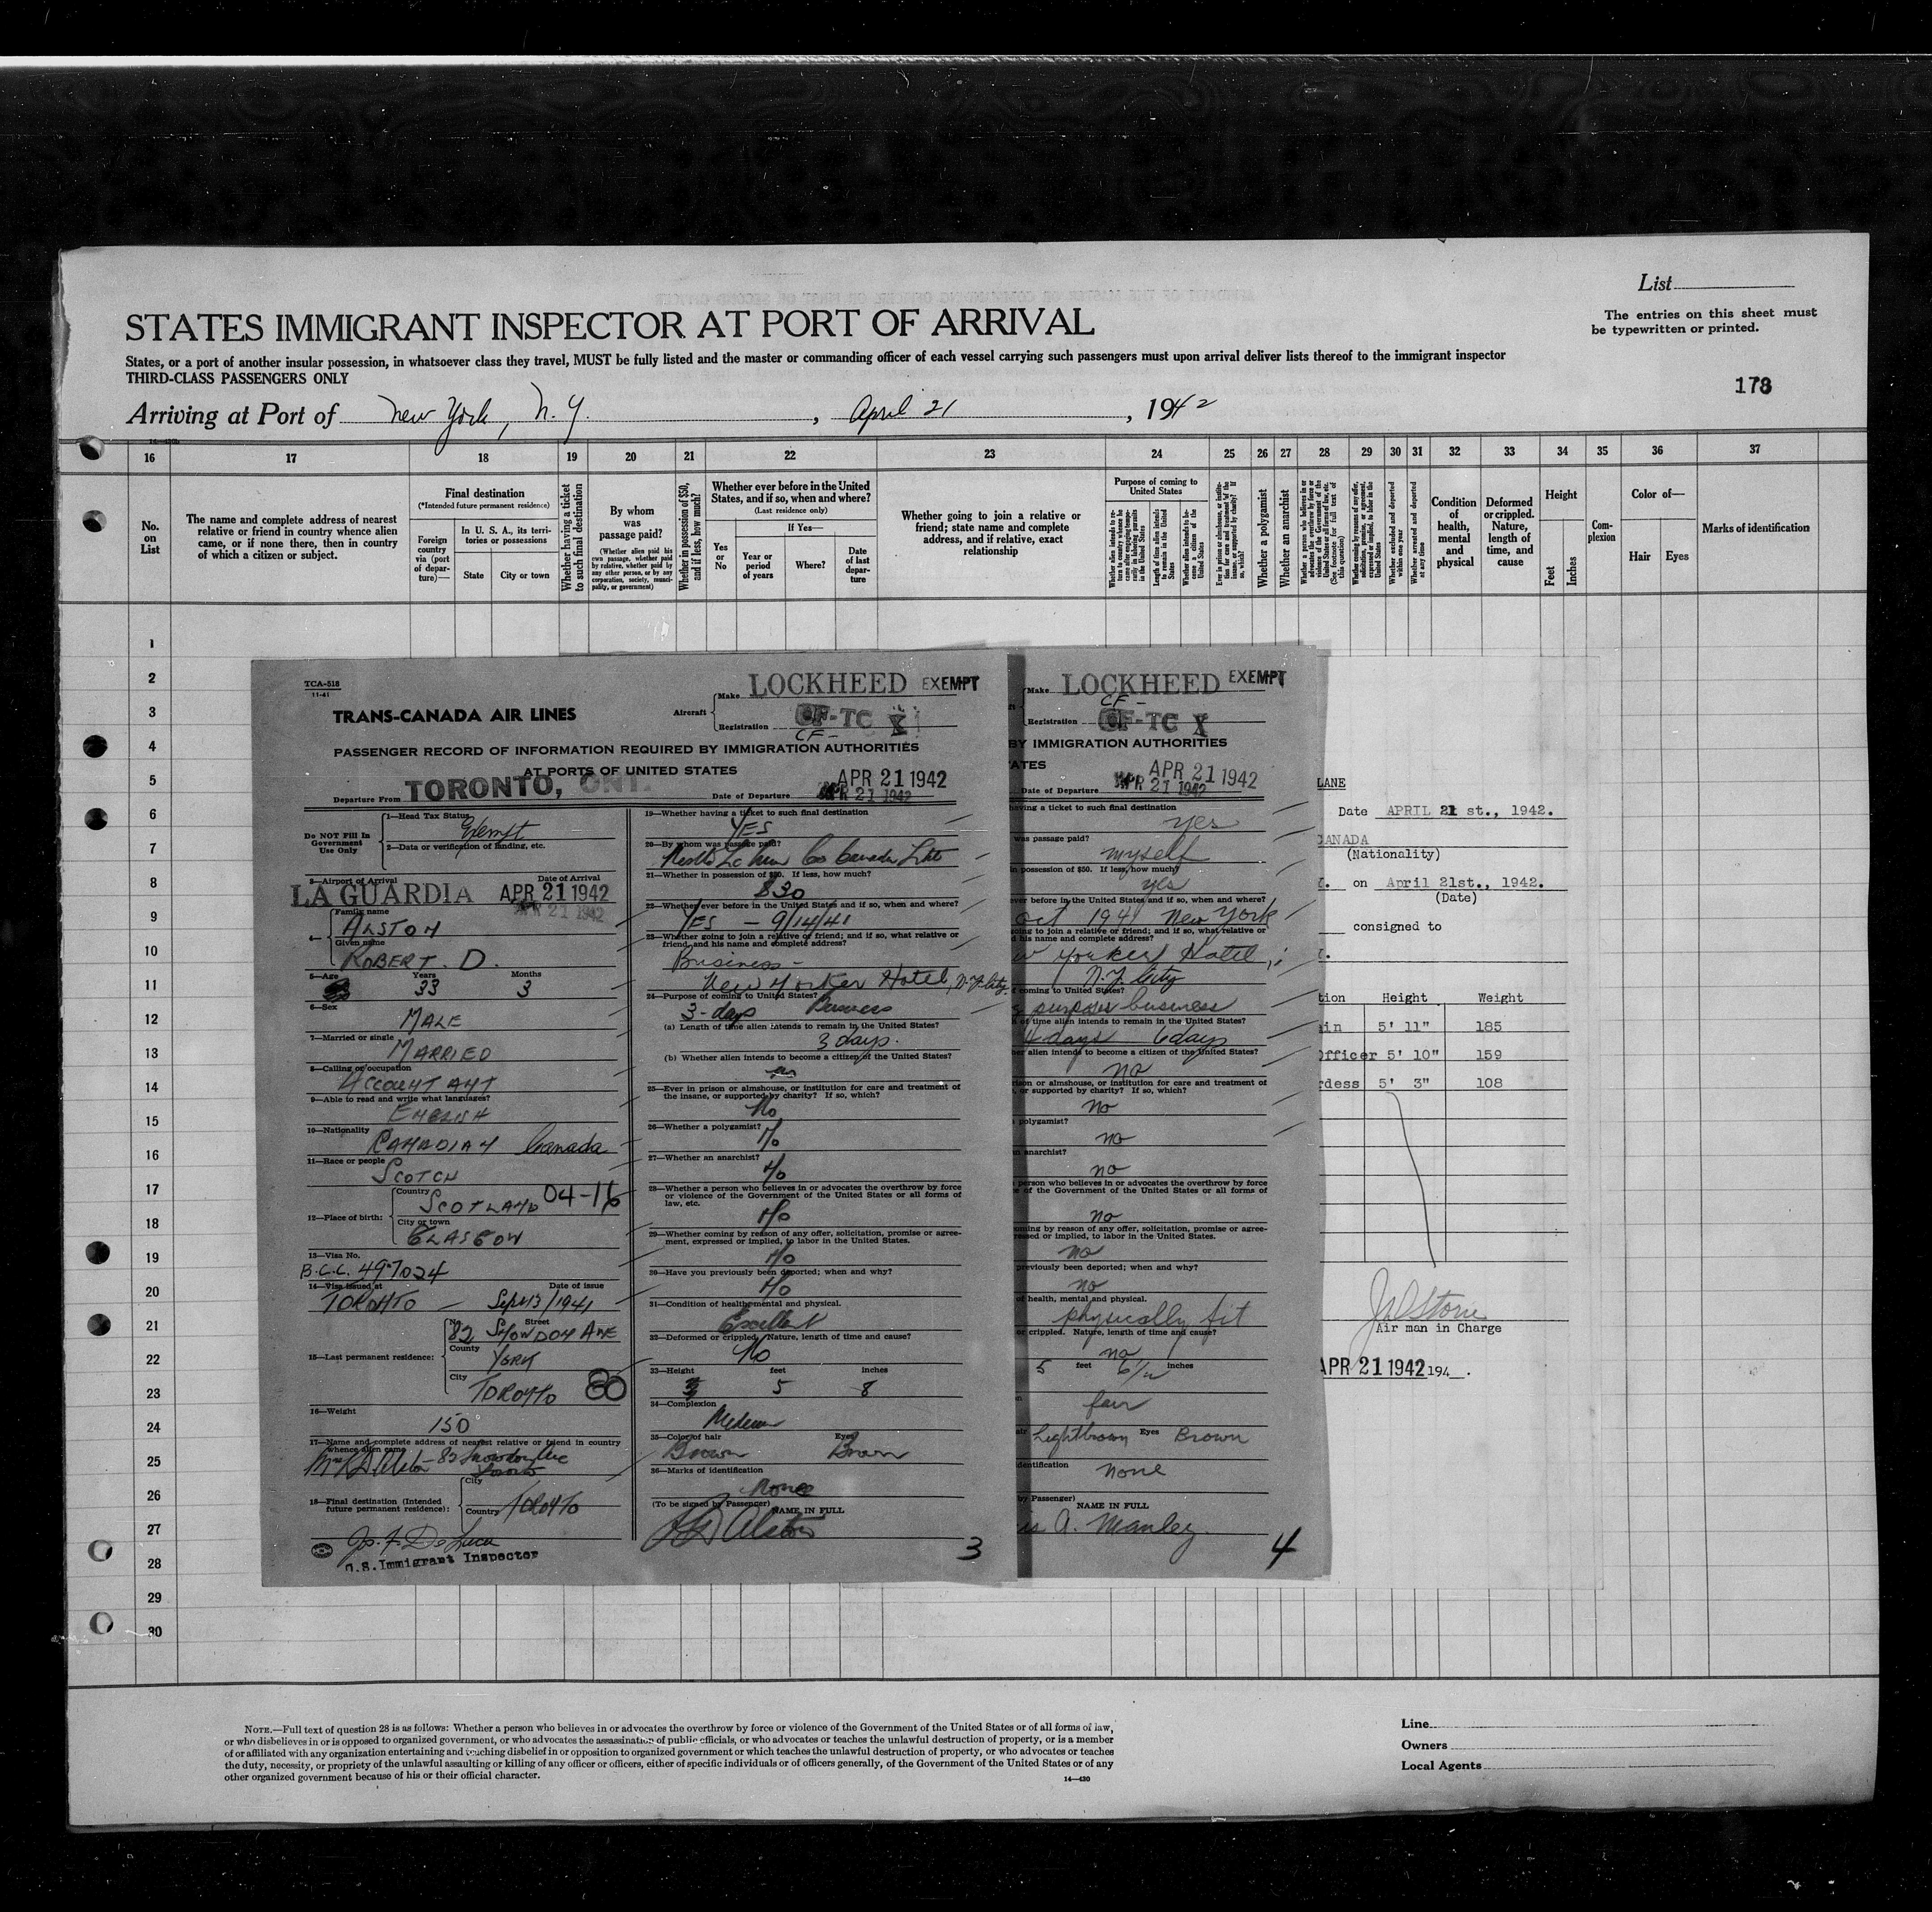 List
The entries on this sheet must
be typewritten or printed.
STATES IMMIGRANT INSPECTOR AT PORT OF ARRIVAL
States, or a port of another insular possession, in whatsoever class they travel, MUST be fully listed and the master or commanding officer of each vessel carrying such passengers must upon arrival deliver lists thereof to the immigrant inspector
THIRD-CLASS PASSENGERS ONLY
178
Arriving at Port of New York, N. Y. , April 21 , 1942
16 17 18 19 20 21 22 23 24 25 26 27 28 29 30 31 32 33 34 35 36 37
No. on List
The name and complete address of nearest relative or friend in country whence alien came, or if none there, then in country of which a citizen or subject.
Final destination
(*Intended future permanent residence)
Foreign country via (port of departure)—
In U. S. A., its territories or possessions
State
City or town
Whether having a ticket to such final destination
By whom was passage paid?
(Whether alien paid his own passage, whether paid by relative, whether paid by any other person, or by any corporation, society, municipality, or government)
Whether in possession of $50, and if less, how much?
Whether ever before in the United States, and if so, when and where?
(Last residence only)
Yes or No
If Yes—
Year or period of years
Where?
Date of last departure
Whether going to join a relative or friend; state name and complete address, and if relative, exact relationship
Purpose of coming to United States
Length of time alien intends to remain in the United States
Whether alien intends to become a citizen of the United States
Whether a polygamist
Whether an anarchist
Whether excluded and deported within one year
Whether arrested and deported at any time
Condition of health, mental and physical
Deformed or crippled. Nature, length of time, and cause
Height
Feet
Inches
Complexion
Color of—
Hair
Eyes
Marks of identification
1
2
3
4
5
6
7
8
9
10
11
12
13
14
15
16
17
18
19
20
21
22
23
24
25
26
27
28
29
30
TCA-518
11-41
TRANS-CANADA AIR LINES
Aircraft
Make LOCKHEED EXEMPT
Registration CF-TC X
CF-
PASSENGER RECORD OF INFORMATION REQUIRED BY IMMIGRATION AUTHORITIES
AT PORTS OF UNITED STATES
Departure From TORONTO, ONT.
Date of Departure APR 21 1942
APR 21 1942
Do NOT Fill In Government Use Only
1—Head Tax Status Exempt
2—Data or verification of landing, etc.
3—Airport of Arrival Date of Arrival
LA GUARDIA APR 21 1942
APR 21 1942
4— Family name
ALSTON
Given name
ROBERT. D.
5—Age Years Months
33 3
6—Sex
MALE
7—Married or single
MARRIED
8—Calling or occupation
ACCOUNTANT
9—Able to read and write what languages?
ENGLISH
10—Nationality
CANADIAN Canada
11—Race or people
SCOTCH
12—Place of birth:
Country
SCOTLAND 04-16
City or town
GLASGOW
13—Visa No.
B.C.C. 497024
14—Visa issued at Date of issue
TORONTO — Sept 13/1941
15—Last permanent residence:
Street
82 SNOWDON AVE
County
YORK
City
TORONTO 80
16—Weight
150
17—Name and complete address of nearest relative or friend in country
whence alien came
Mrs R D Alston - 82 Snowdon Ave
Toronto
18—Final destination (Intended future permanent residence):
City
Country TORONTO
Jos. F. De Luca
U.S. Immigrant Inspector
19—Whether having a ticket to such final destination
YES
20—By whom was passage paid?
21—Whether in possession of $50. If less, how much?
$30
22—Whether ever before in the United States and if so, when and where?
YES — 9/14/41
23—Whether going to join a relative or friend; and if so, what relative or
friend, and his name and complete address?
Business —
New Yorker Hotel, N.Y. City.
24—Purpose of coming to United States?
3-days Business
(a) Length of time alien intends to remain in the United States?
3 days.
(b) Whether alien intends to become a citizen of the United States?
no
25—Ever in prison or almshouse, or institution for care and treatment of
the insane, or supported by charity? If so, which?
No
26—Whether a polygamist?
No
27—Whether an anarchist?
No
28—Whether a person who believes in or advocates the overthrow by force
or violence of the Government of the United States or all forms of
law, etc.
No
29—Whether coming by reason of any offer, solicitation, promise or agree-
ment, expressed or implied, to labor in the United States.
No
30—Have you previously been deported; when and why?
No
31—Condition of health, mental and physical.
Excellent
32—Deformed or crippled. Nature, length of time and cause?
No
33—Height feet inches
5 8
34—Complexion
Medium
35—Color of hair Eyes
Brown Brown
36—Marks of identification
None
(To be signed by Passenger) NAME IN FULL
R D Alston
3
Make LOCKHEED EXEMPT
CF-
Registration CF-TC X
BY IMMIGRATION AUTHORITIES
ATES
APR 21 1942
Date of Departure APR 21 1942
having a ticket to such final destination
yes
was passage paid?
myself
possession of $50. If less, how much?
yes
ever before in the United States and if so, when and where?
Oct 1941 New York
going to join a relative or friend; and if so, what relative or
d his name and complete address?
w Yorker Hotel,
N.Y. City
coming to United States?
purpose business
of time alien intends to remain in the United States?
4 days 6 days
her alien intends to become a citizen of the United States?
no
rison or almshouse, or institution for care and treatment of
, or supported by charity? If so, which?
no
polygamist?
no
n anarchist?
no
person who believes in or advocates the overthrow by force
e of the Government of the United States or all forms of
no
oming by reason of any offer, solicitation, promise or agree-
ressed or implied, to labor in the United States.
no
previously been deported; when and why?
no
of health, mental and physical.
physically fit
or crippled. Nature, length of time and cause?
no
5 feet 6 1/2 inches
fair
Lightbrown Eyes Brown
identification
none
by Passenger)
NAME IN FULL
is A. Manley
4
LANE
Date APRIL 21 st., 1942.
CANADA
(Nationality)
on April 21st., 1942.
(Date)
consigned to
tion Height Weight
ain 5' 11" 185
Officer 5' 10" 159
rdess 5' 3" 108
Air man in Charge
APR 21 1942 194 .
NOTE.—Full text of question 28 is as follows: Whether a person who believes in or advocates the overthrow by force or violence of the Government of the United States or of all forms of law,
or who disbelieves in or is opposed to organized government, or who advocates the assassination of public officials, or who advocates or teaches the unlawful destruction of property, or is a member
of or affiliated with any organization entertaining and teaching disbelief in or opposition to organized government or which teaches the unlawful destruction of property, or who advocates or teaches
the duty, necessity, or propriety of the unlawful assaulting or killing of any officer or officers, either of specific individuals or of officers generally, of the Government of the United States or of any
other organized government because of his or their official character.
14—430
Line
Owners
Local Agents